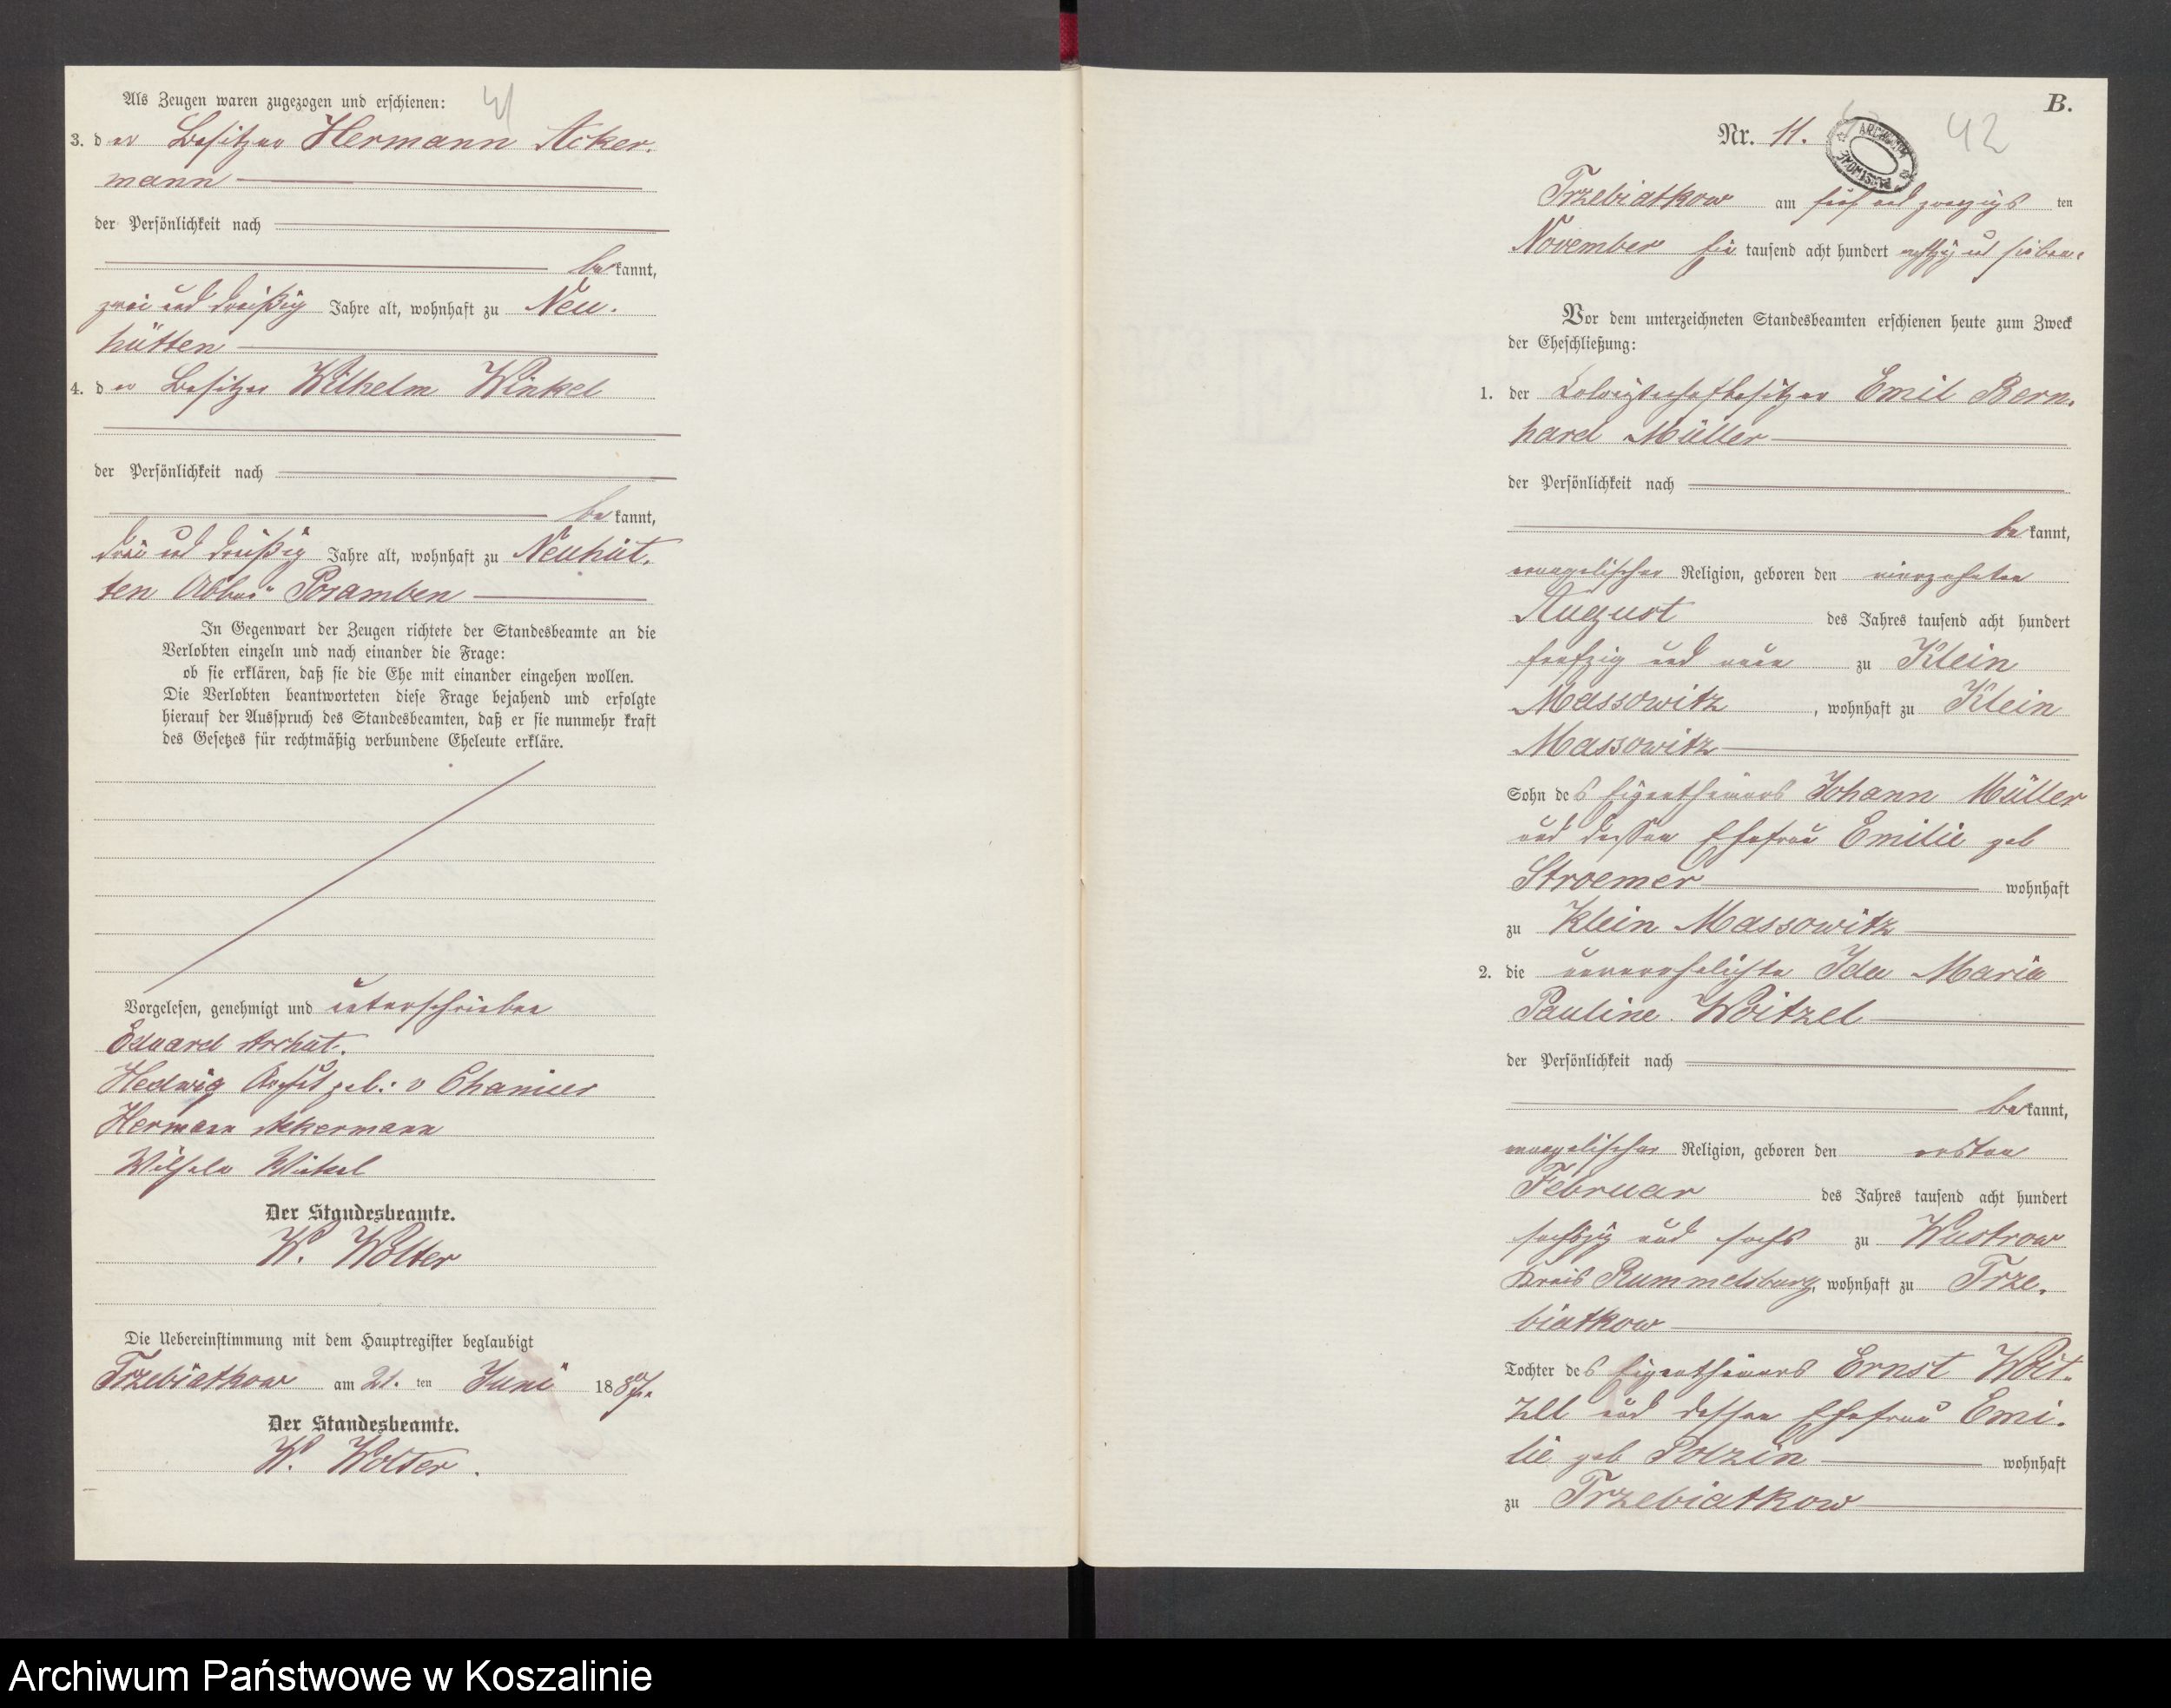 41
Als Zeugen waren zugezogen und erschienen:
3. der Besitzer Hermann Acker-
mann
der Persönlichkeit nach
bekannt,
zwei und dreißig Jahre alt, wohnhaft zu Neu-
hütten
4. der Besitzer Wilhelm Winkel
der Persönlichkeit nach
bekannt,
drei und dreißig Jahre alt, wohnhaft zu Neuhüt-
ten Abbau Poramben
In Gegenwart der Zeugen richtete der Standesbeamte an die
Verlobten einzeln und nach einander die Frage:
ob sie erklären, daß sie die Ehe mit einander eingehen wollen.
Die Verlobten beantworteten diese Frage bejahend und erfolgte
hierauf der Ausspruch des Standesbeamten, daß er sie nunmehr kraft
des Gesetzes für rechtmäßig verbundene Eheleute erkläre.
Vorgelesen, genehmigt und unterschrieben
Eduard Archut.
Hedwig Archut geb: v
Hermann Akkermann
Wilhelm Winkel
Der Standesbeamte.
W. Wolter
Die Uebereinstimmung mit dem Hauptregister beglaubigt
Trzebiatkow am 21. ten Juni 1887.
Der Standesbeamte.
W. Wolter.
B.
Nr. 11.
42
ARCHIWUM PAŃSTWOWE
Trzebiatkow am fünf und zwanzigs ten
November ein tausend acht hundert achtzig und sieben.
Vor dem unterzeichneten Standesbeamten erschienen heute zum Zweck
der Eheschließung:
1. der Kolonistenhofbesitzer Emil Bern-
hard Müller
der Persönlichkeit nach
bekannt,
evangelischer Religion, geboren den vierzehnten
August des Jahres tausend acht hundert
fünfzig und neun zu Klein
Massowitz, wohnhaft zu Klein
Massowitz
Sohn des Eigenthümers Johann Müller
und dessen Ehefrau Emilie geb
Stroemer wohnhaft
zu Klein Massowitz
2. die unverehelichte Ida Maria
Pauline Woitzel
der Persönlichkeit nach
bekannt,
evangelischer Religion, geboren den ersten
Februar des Jahres tausend acht hundert
sechszig und sechs zu Wustrow
Kreis Rummelsburg, wohnhaft zu Trze-
biatkow
Tochter des Eigenthümers Ernst Woit-
zell und dessen Ehefrau Emi-
lie geb Polzin wohnhaft
zu Trzebiatkow
Archiwum Państwowe w Koszalinie